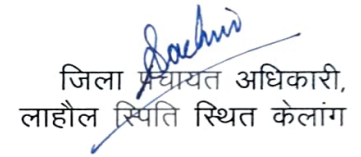 Sachin
जिला पंचायत अधिकारी,
लाहौल स्पिति स्थित केलांग